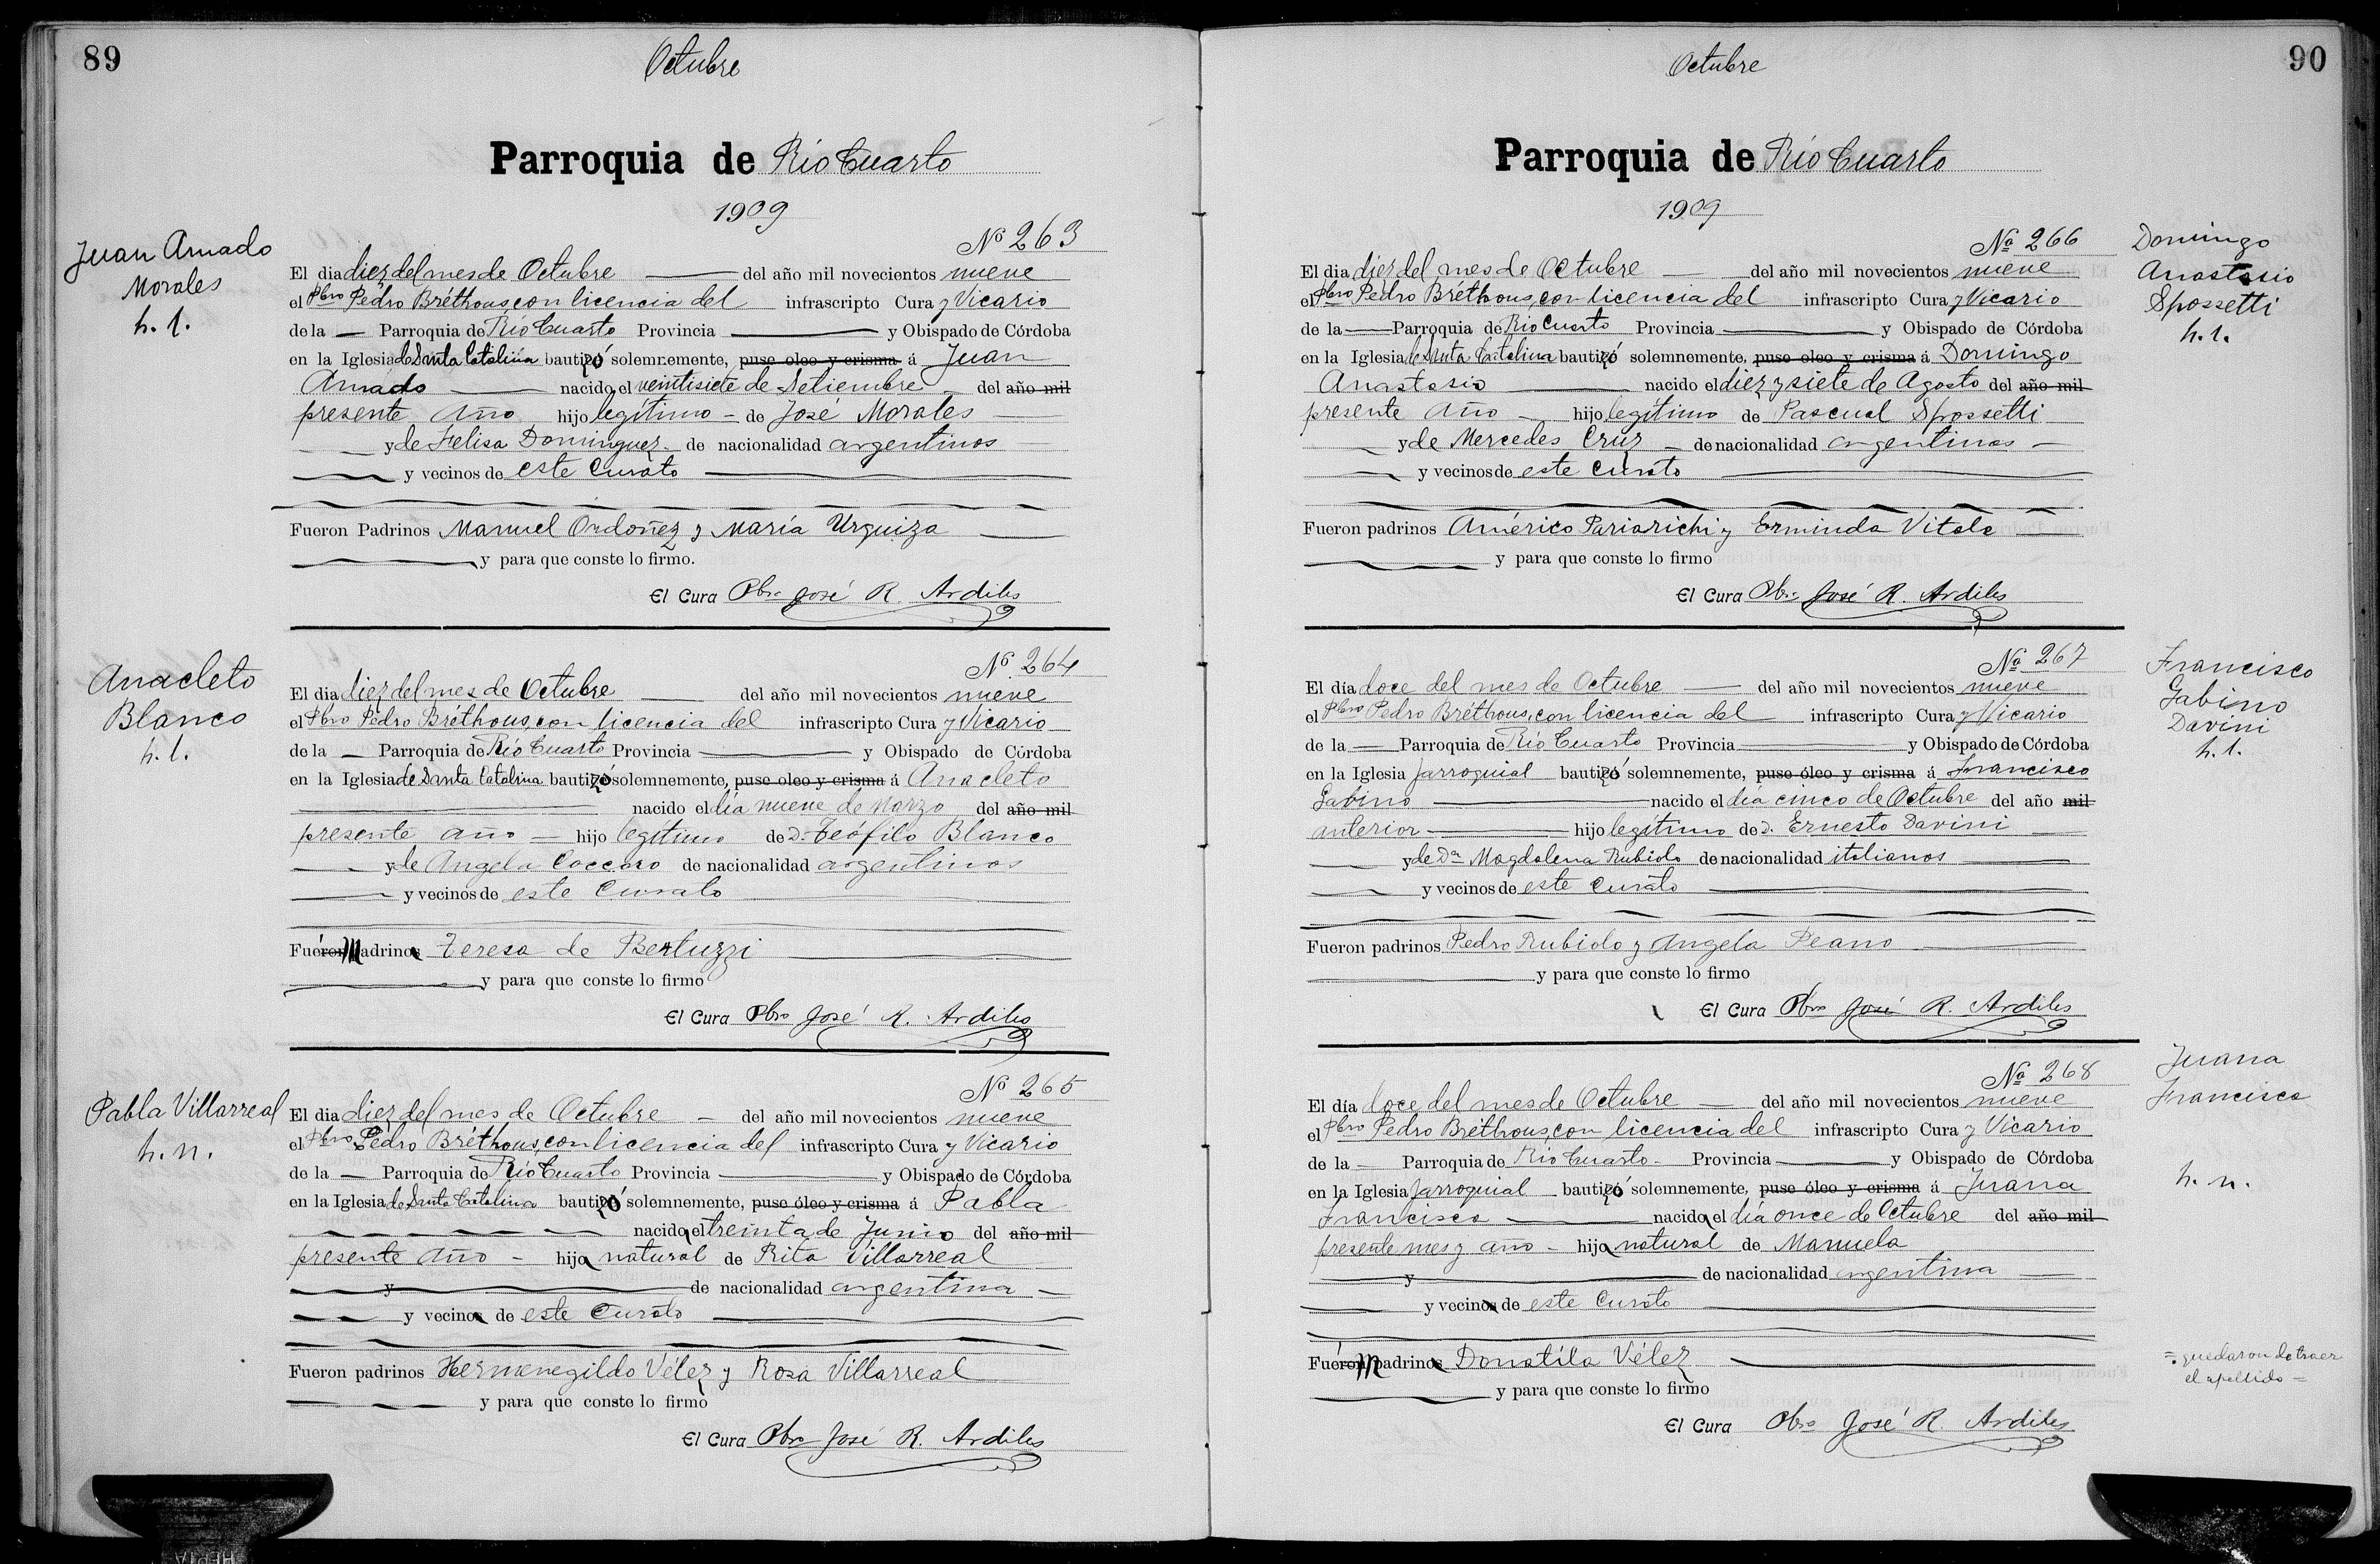 89
Octubre
Parroquia de Río Cuarto
1909
Nº 263
Juan Amado
Morales
h. l.
El dia diez del mes de Octubre — del año mil novecientos nueve
el Pbro Pedro Bréthous, con licencia del infrascripto Cura y Vicario
de la — Parroquia de Río Cuarto Provincia — y Obispado de Córdoba
en la Iglesia de Santa Catalina bautizó solemnemente, puso oleo y crisma á Juan
Amado — nacido el veintisiete de Setiembre — del año mil
presente año hijo legítimo — de José Morales —
— y de Felisa Dominguez — de nacionalidad argentinos
— y vecinos de este Curato —
Fueron Padrinos Manuel Ordoñez y María Urquiza —
— y para que conste lo firmo.
El Cura Pbro José R. Ardiles
Nº 264
Anacleto
Blanco
h. l.
El dia diez del mes de Octubre — del año mil novecientos nueve
el Pbro Pedro Bréthous, con licencia del infrascripto Cura y Vicario
de la — Parroquia de Río Cuarto Provincia — y Obispado de Córdoba
en la Iglesia de Santa Catalina bautizó solemnemente, puse oleo y crisma á Anacleto
— nacido el día nueve de Marzo del año mil
presente año — hijo legítimo de D. Teófilo Blanco
— y de Angela Coccaro de nacionalidad argentinos
— y vecinos de este Curato —
Fueron Madrina Teresa de Bertuzzi —
— y para que conste lo firmo
El Cura Pbro José R. Ardiles
Nº 265
Pabla Villarreal
h. n.
El dia diez del mes de Octubre — del año mil novecientos nueve
el Pbro Pedro Bréthous, con licencia del infrascripto Cura y Vicario
de la — Parroquia de Río Cuarto Provincia — y Obispado de Córdoba
en la Iglesia de Santa Catalina bautizó solemnemente, puse óleo y crisma á Pabla
— nacida el treinta de Junio del año mil
presente año — hija natural de Rita Villarreal
— y — de nacionalidad argentina —
— y vecina de este Curato —
Fueron padrinos Hermenegildo Vélez y Rosa Villarreal
— y para que conste lo firmo
El Cura Pbro José R. Ardiles
90
Octubre
Parroquia de Río Cuarto
1909
Nº 266
Domingo
Anastasio
Spossetti
h. l.
El dia diez del mes de Octubre — del año mil novecientos nueve
el Pbro Pedro Bréthous, con licencia del infrascripto Cura y Vicario
de la — Parroquia de Río Cuarto Provincia — y Obispado de Córdoba
en la Iglesia de Santa Catalina bautizó solemnemente, puse oleo y crisma á Domingo
Anastasio — nacido el diez y siete de Agosto del año mil
presente año — hijo legítimo de Pascual Spossetti
— y de Mercedes Cruz — de nacionalidad argentinos —
— y vecinos de este Curato —
Fueron padrinos Américo Pariarichi y Erminda Vitale —
— y para que conste lo firmo
El Cura Pbro José R. Ardiles
Nº 267
Francisco
Gabino
Davini
h. l.
El día doce del mes de Octubre — del año mil novecientos nueve
el Pbro Pedro Bréthous, con licencia del infrascripto Cura y Vicario
de la — Parroquia de Río Cuarto Provincia — y Obispado de Córdoba
en la Iglesia Parroquial bautizó solemnemente, puse óleo y crisma á Francisco
Gabino — nacido el día cinco de Octubre del año mil
anterior — hijo legítimo de D. Ernesto Davini —
— y de Da Magdalena Rubiolo de nacionalidad italianos —
— y vecinos de este Curato —
Fueron padrinos Pedro Rubiolo y Angela Peano —
— y para que conste lo firmo
El Cura Pbro José R. Ardiles
Nº 268
Juana
Francisca
h. n.
El día doce del mes de Octubre — del año mil novecientos nueve
el Pbro Pedro Bréthous, con licencia del infrascripto Cura y Vicario
de la — Parroquia de Río Cuarto — Provincia — y Obispado de Córdoba
en la Iglesia Parroquial bautizó solemnemente, puse óleo y crisma á Juana
Francisca — nacida el día once de Octubre del año mil
presente mes y año — hija natural de Manuela
— y — de nacionalidad argentina —
— y vecina de este Curato —
Fueron madrina Donatila Vélez —
— y para que conste lo firmo
El Cura Pbro José R. Ardiles
=. quedaron de traer
el apellido =